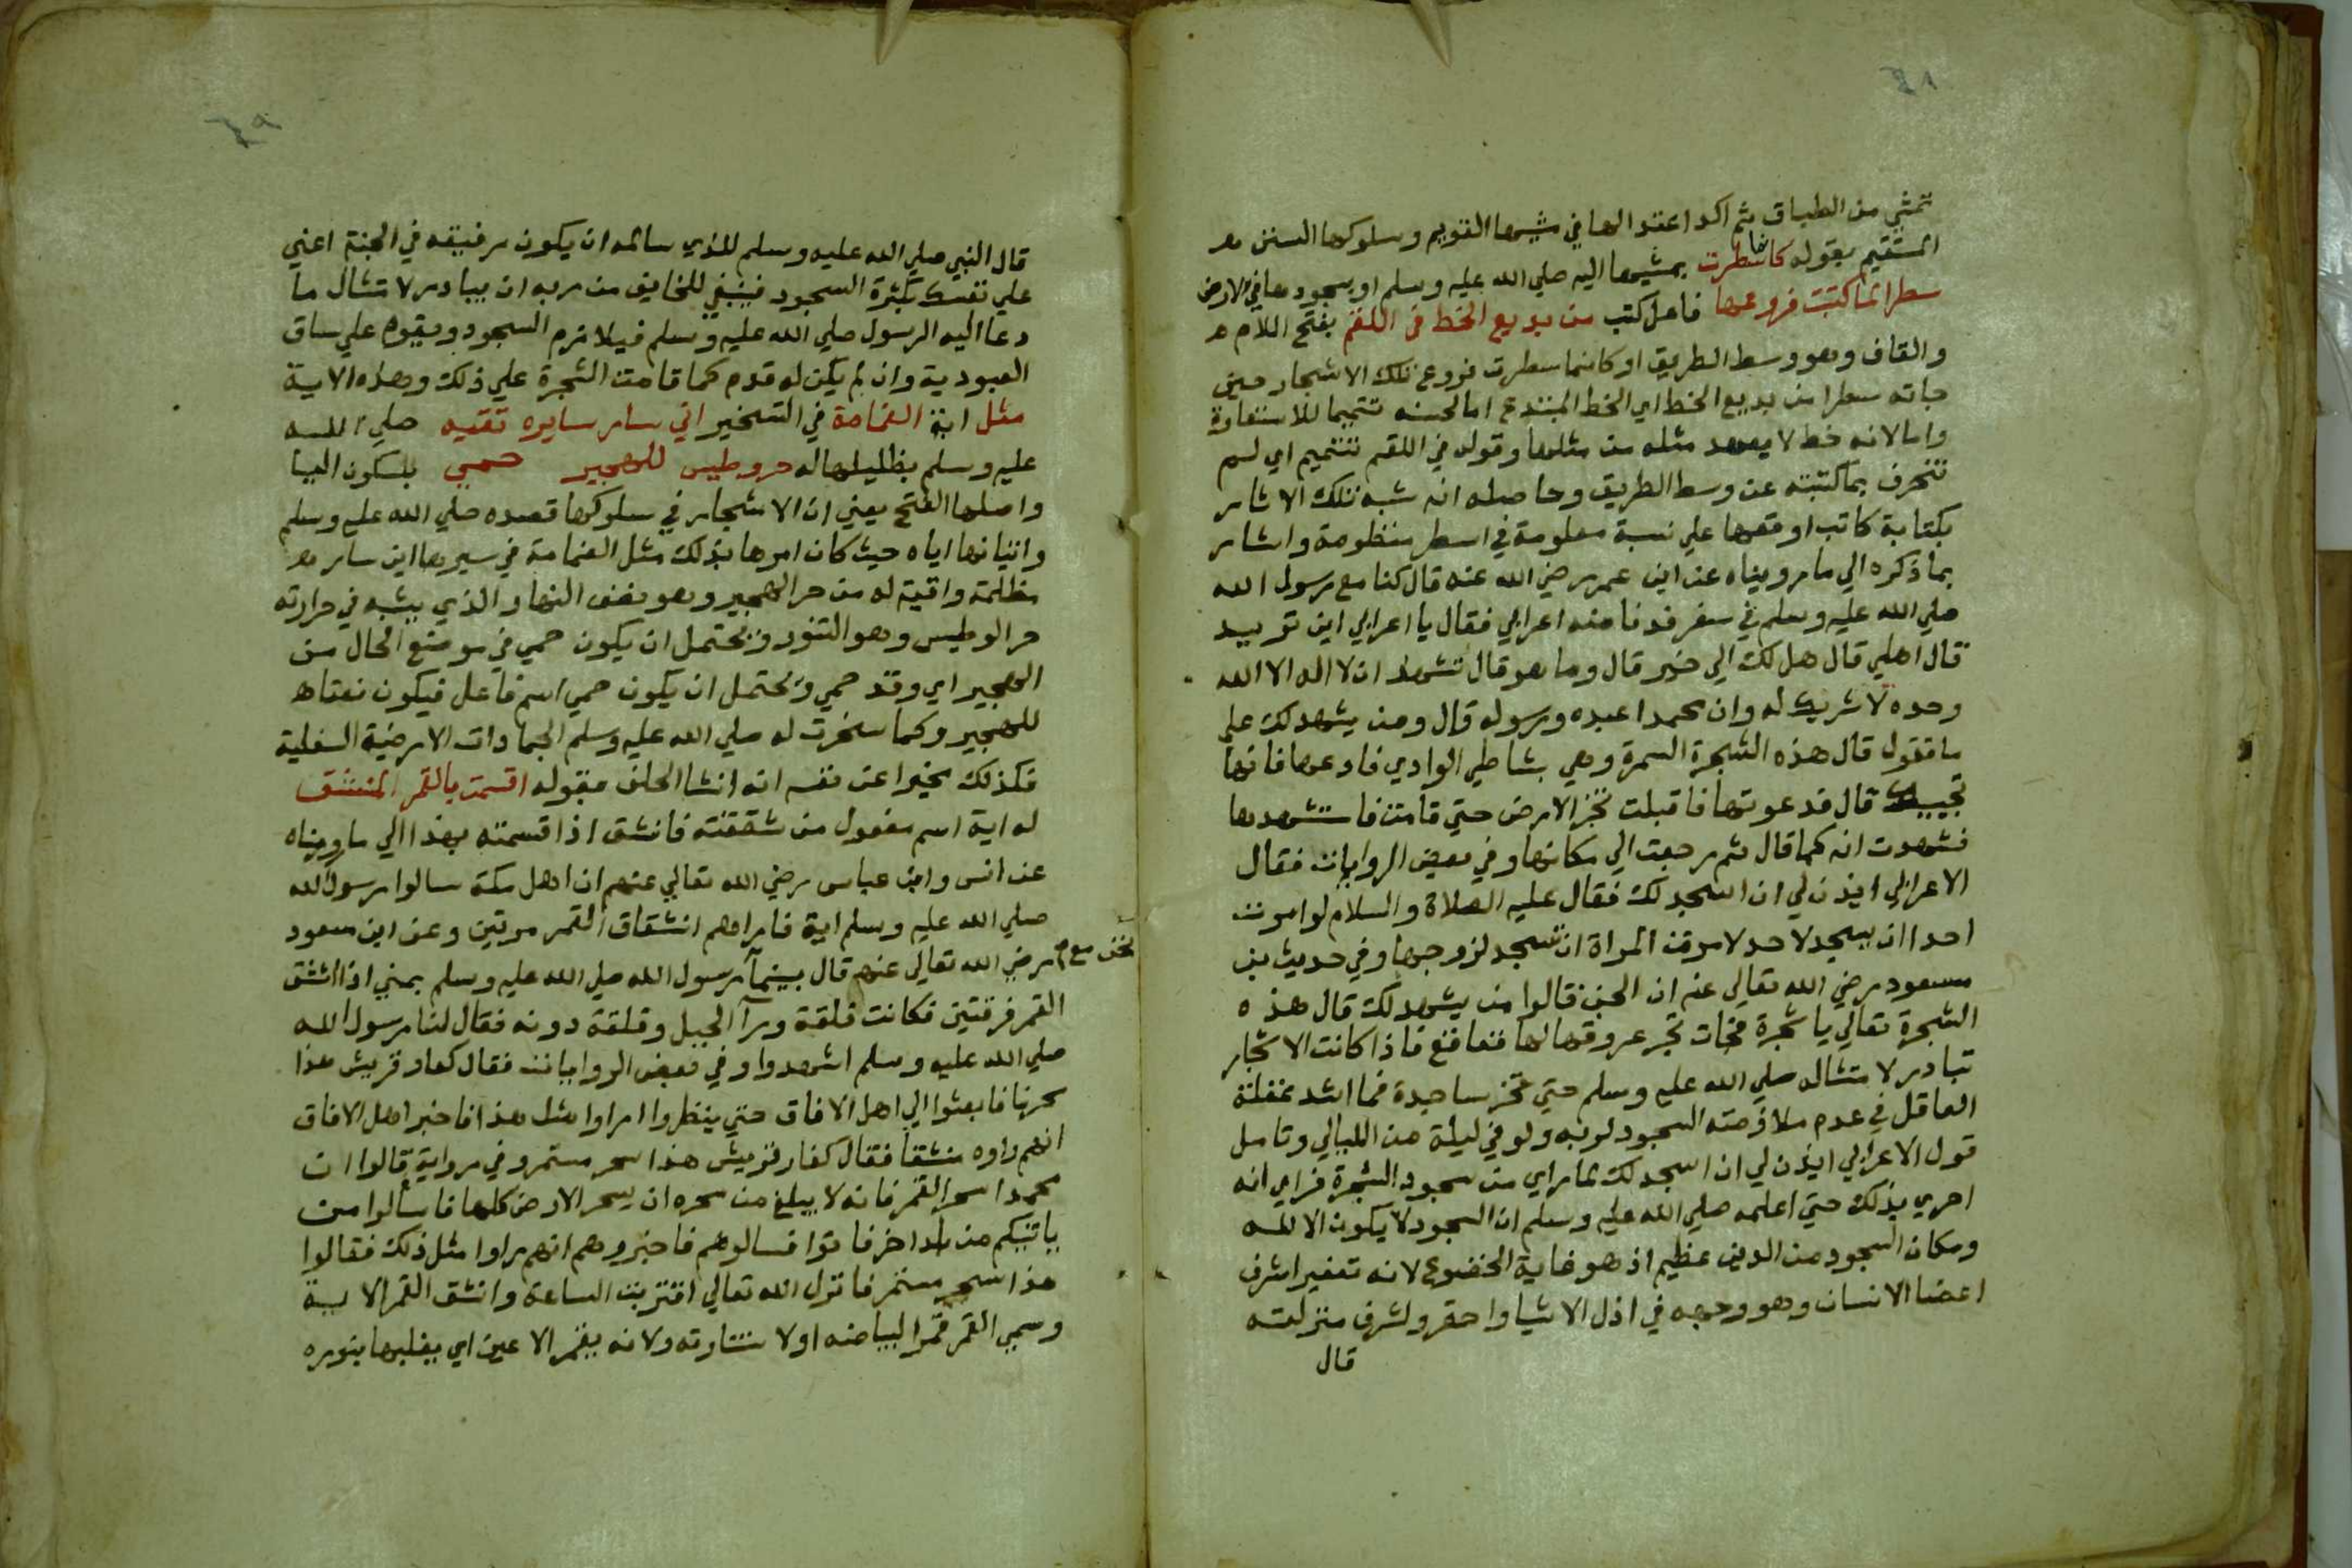 ٤٨
تمشي من الطباق ثم اكد اعتدالها في مشيها القويم وسلوكها السنن
المستقيم بقوله كانما سطرت بمشيها اليه صلي الله عليه وسلم او بسجودها في الارض
سطرا لما كتبت فروعها فاعل كتب من بديع الخط في اللقم بفتح اللام
والقاف وهو وسط الطريق او كانما سطرت فروع تلك الاشجار حين
جاته سطرا من بديع الخط اي الخط المبتدع اما لحسنه تتميما للاستعارة
واما لانه خط لا يعهد مثله من مثلها وقوله في اللقم تتميم اي لم
تنحرف بما كتبته عن وسط الطريق وحاصله انه شبه تلك الاثار
بكتابة كاتب اوقعها علي نسبة معلومة في اسطر منظومة واشار
بما ذكره الي ما رويناه عن ابن عمر رضي الله عنه قال كنا مع رسول الله
صلي الله عليه وسلم في سفر فدنا منه اعرابي فقال يا اعرابي اين تريد
قال اهلي قال هل لك الي خير قال وما هو قال تشهد ان لا اله الا الله
وحده لا شريك له وان محمدا عبده ورسوله قال ومن يشهد لك علي
ما تقول قال هذه الشجرة السمرة وهي بشاطي الوادي فادعها فانها
تجيبك قال فدعوتها فاقبلت تخز الارض حتي قامت فاستشهدها
فشهدت انه كما قال ثم رجعت الي مكانها وفي بعض الروايات فقال
الاعرابي ايذن لي ان اسجد لك فقال عليه الصلاة والسلام لو امرت
احدا ان يسجد لاحد لامرت المراة ان تسجد لزوجها وفي حديث بن
مسعود رضي الله تعالي عنه ان الجن قالوا من يشهد لك قال هذه
الشجرة تعالي يا شجرة فجات تجر عروقها لها قعاقع فاذا كانت الاشجار
تبادر لامتثاله صلي الله عليه وسلم حتي تخر ساجدة فما اشد غفلة
العاقل في عدم ملازمته السجود لربه ولو في ليلة من الليالي وتامل
قول الاعرابي ايذن لي ان اسجد لك لما راي من سجود الشجرة فراي انه
احري بذلك حتي اعلمه صلي الله عليه وسلم ان السجود لا يكون الا لله
ومكان السجود من الدين عظيم اذ هو غاية الخضوع لانه تعفير اشرف
اعضا الانسان وهو وجهه في اذل الاشيا واحقر ولشرف منزلته
قال
٤٩
قال النبي صلي الله عليه وسلم للذي ساله ان يكون رفيقه في الجنة اعني
علي نفسك بكثرة السجود فينبغي للخايف من ربه ان يبادر لامتثال ما
دعا اليه الرسول صلي الله عليه وسلم فيلازم السجود ويقوم علي ساق
العبودية وان لم يكن له قدم كما قامت الشجرة علي ذلك وهذه الاية
مثل اية الغمامة في التسخير اني سار سايره تقيه صلي الله
عليه وسلم بظليلها له حر وطيس للهجير حمي بسكون اليا
واصلها الفتح يعني ان الاشجار في سلوكها قصده صلي الله عليه وسلم
واتيانها اياه حيث كان امرها بذلك مثل الغمامة في سيرها اين سار
مظلته واقية له من حر الهجير وهو نصف النهار الذي يشبه في حرارته
حر الوطيس وهو التنور ويحتمل ان يكون حمي في موضع الحال من
الهجير اي وقد حمي ويحتمل ان يكون حمي اسم فاعل فيكون نعتا
للهجير وكما سخرت له صلي الله عليه وسلم الجمادات الارضية السفلية
فكذلك مخبرا عن نفسه انه انشا الحلف بقوله اقسمت بالقمر المنشق
له اية اسم مفعول من شققته فانشق اذا قسمته بهذا الي ما رويناه
عن انس وابن عباس رضي الله تعالي عنهم ان اهل مكة سالوا رسول الله
صلي الله عليه وسلم اية فاراهم انشقاق القمر مرتين وعن ابن مسعود
رضي الله تعالي عنه قال بينما نحن مع رسول الله صلي الله عليه وسلم بمني اذ انشق
القمر فرقتين فكانت فلقة ورآ الجبل وفلقة دونه فقال لنا رسول الله
صلي الله عليه وسلم اشهدوا وفي بعض الروايات فقال كفار قريش هذا
سحر فابعثوا الي اهل الافاق حتي ينظروا اراوا مثل هذا فاخبر اهل الافاق
انهم راوه منشقا فقال كفار قريش هذا سحر مستمر وفي رواية قالوا ان
محمدا سحر القمر فانه لا يبلغ من سحره ان يسحر الارض كلها فاسالوا من
ياتيكم من بلد اخر فاتوا فسالوهم فاخبروهم انهم راوا مثل ذلك فقالوا
هذا سحر مستمر فانزل الله تعالي اقتربت الساعة وانشق القمر الاية
وسمي القمر قمرا لبياضه او لاستنارته ولانه يقمر الاعين اي يغلبها بنوره